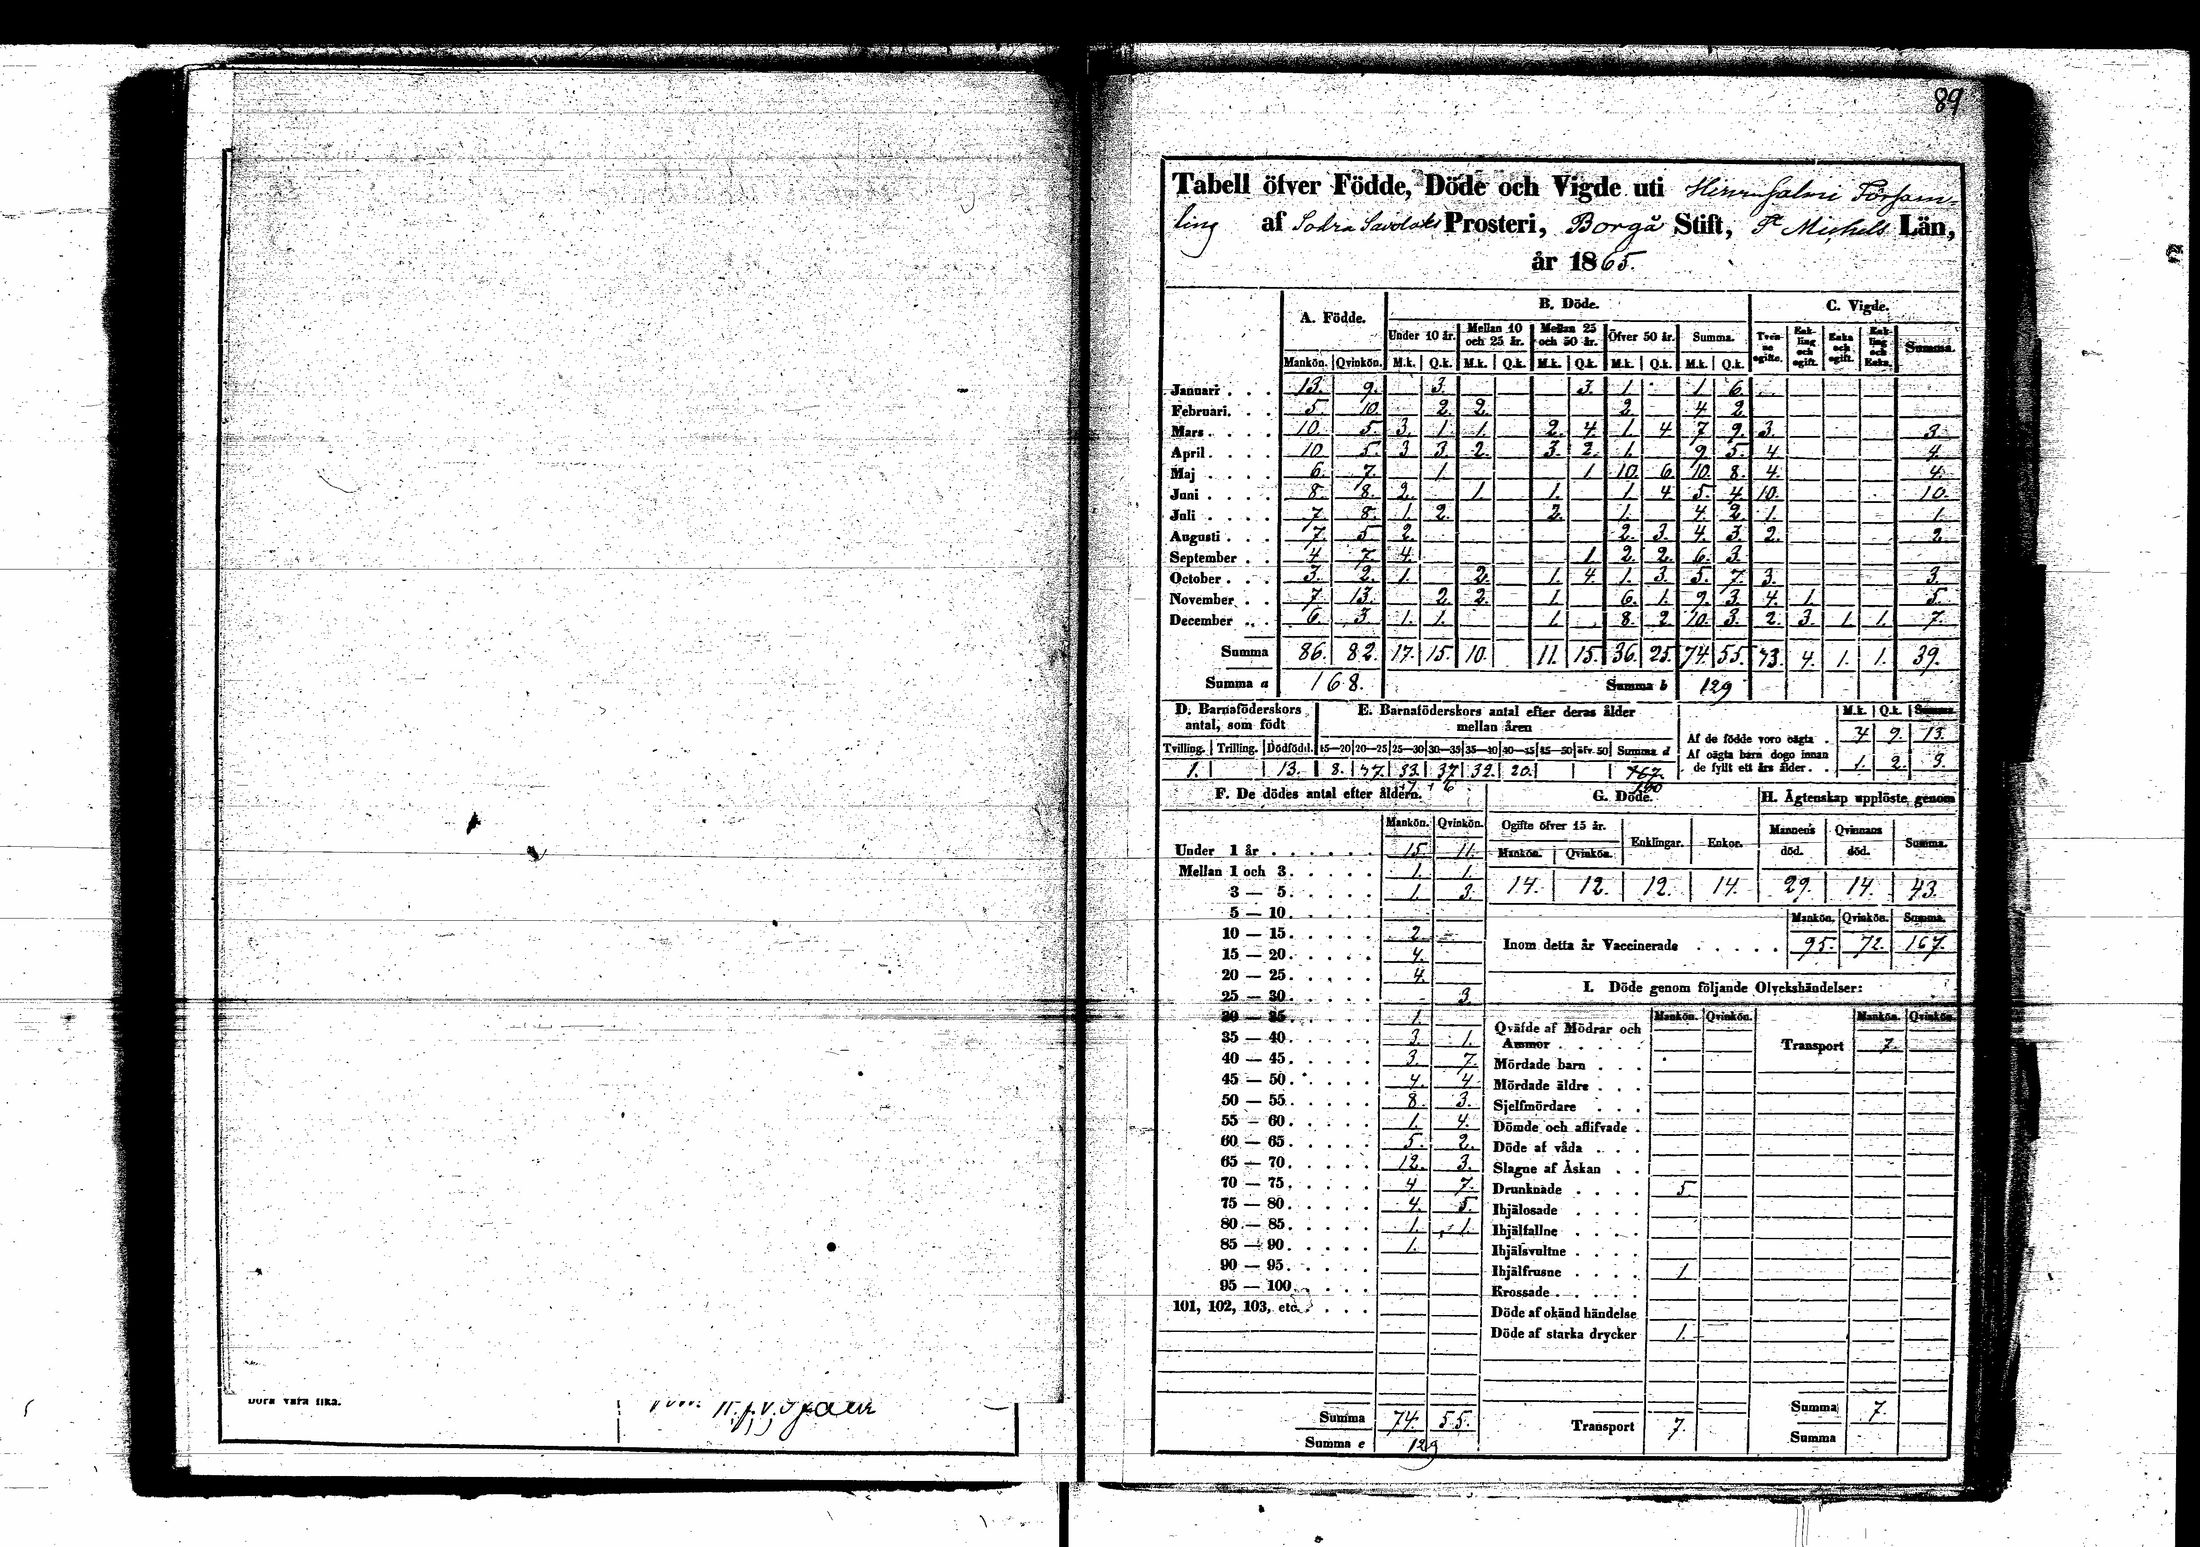 89
Tabell öfver Födde, Döde och Vigde uti Hirvensalmi Församling
af Södra Savolaks Prosteri, Borgå Stift, St Michels Län,
år 1865.
A. Födde. B. Döde. C. Vigde.
Under 10 år. Mellan 10 och 25 år. Mellan 25 och 50 år. Öfver 50 år. Summa. Tvenne ogifte. Enkling och ogift. Enka och ogift. Enkling och Enka. Summa.
Mankön. Qvinkön. M.k. Q.k. M.k. Q.k. M.k. Q.k. M.k. Q.k. M.k. Q.k.
Januari . . . 13. 9. 3. 3. 1. 1. 6.
Februari. . . 5. 10. 2. 2. 2. 4. 2
Mars . . . . 10. 5. 3. 1. 1. 2. 4. 1. 4 7 9. 3. 3.
April . . . . 10 5. 3 3. 2. 3. 2. 1. 9 5. 4 4.
Maj . . . . 6. 7. 1. 1 10. 6. 10. 8. 4. 4.
Juni . . . . 8. 8. 2. 1. 1. 1. 4 5. 4 10. 10.
Juli . . . . 7. 8. 1. 2. 2. 1. 4. 2 1. 1.
Augusti . . . 7. 5 2. 2. 3. 4. 3. 2. 2
September . . 4 7. 4. 1. 2. 2. 6. 3.
October . . . 3. 2. 1. 2. 1. 4. 1. 3. 5. 7. 3. 3.
November . . 7. 13. 2. 2. 1. 6. 1. 9. 3. 4. 1. 5.
December . . 6. 3 1. 1. 1. 8. 2 10. 3. 2. 3. 1. 1. 7.
Summa 86. 82. 17. 15. 10. 11. 15. 36. 25. 74. 55. 33. 4. 1. 1. 39.
Summa a 168. Summa b 129
D. Barnaföderskors antal, som födt
E. Barnaföderskors antal efter deras ålder mellan åren
M.k. Q.k. Summa.
Tvilling. Trilling. Dödfödd. 15—20 20—25 25—30 30—35 35—40 40—45 45—50 öfv. 50 Summa d
1. 13. 8. 37. 33. 37. 32. 20. 167.
180
Af de födde voro oägta . 4 9. 13.
Af oägta barn dogo innan de fyllt ett års ålder. . 1. 2. 3.
F. De dödes antal efter åldern.
Mankön. Qvinkön.
Under 1 år . . . . . . 15. 11.
Mellan 1 och 3. . . . . 1. 1.
3 — 5. . . . . 1. 3.
5 — 10. . . . .
10 — 15. . . . . 2
15 — 20. . . . . 4.
20 — 25. . . . . 4.
25 — 30. . . . . 3.
30 — 35. . . . . 1.
35 — 40. . . . . 3. 1.
40 — 45. . . . . 3. 7.
45 — 50. . . . . 4. 4
50 — 55. . . . . 8. 3.
55 — 60. . . . . 1. 4.
60 — 65. . . . . 5. 2.
65 — 70. . . . . 12. 3.
70 — 75. . . . . 4 7.
75 — 80. . . . . 4. 5.
80 — 85. . . . . 1. 1.
85 — 90. . . . . 1.
90 — 95. . . . .
95 — 100. . . . .
101, 102, 103, etc. . . . .
Summa 74. 55.
Summa e 129
G. Döde.
Ogifte öfver 15 år. Enklingar. Enkor.
Mankön. Qvinkön.
14. 12. 12. 14.
H. Ägtenskap upplöste genom
Mannens död. Qvinnans död. Summa.
29. 14. 43.
Mankön. Qvinkön. Summa.
Inom detta år Vaccinerade . . . . . 95. 72. 167.
I. Döde genom följande Olyckshändelser:
Mankön. Qvinkön. Mankön. Qvinkön.
Qväfde af Mödrar och Ammor . . . . .
Transport 7.
Mördade barn . . .
Mördade äldre . . .
Sjelfmördare . . .
Dömde och aflifvade .
Döde af våda . . .
Slagne af Åskan . .
Drunknade . . . . 5
Ihjälosade . . . .
Ihjälfallne . . . .
Ihjälsvultne . . . .
Ihjälfrusne . . . . 1
Krossade . . . . .
Döde af okänd händelse
Döde af starka drycker 1.
Transport 7.
Summa 7.
Summa
böra vara lika.